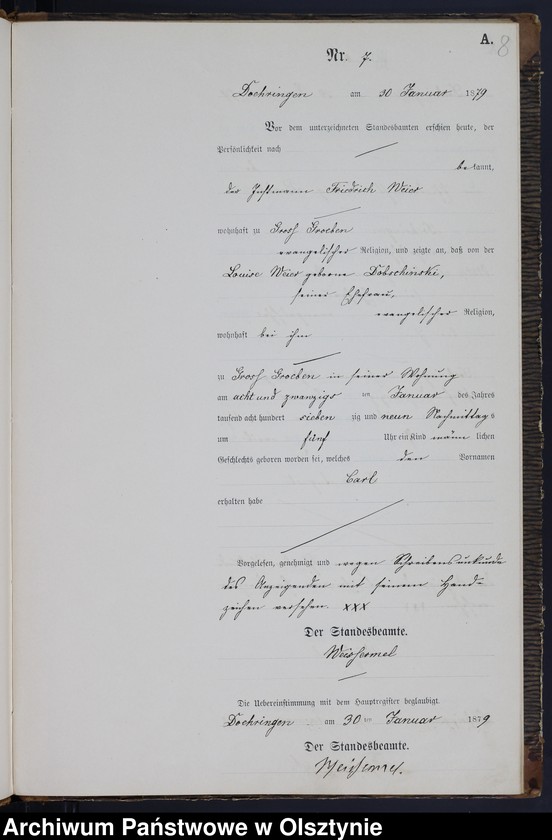 A.
8
Nr. 7.
Doehringen am 30 Januar 1879
Vor dem unterzeichneten Standesbeamten erschien heute, der
Persönlichkeit nach
bekannt,
der Instmann Friedrich Weier
wohnhaft zu Gross Groeben
evangelischer Religion, und zeigte an, daß von der
Louise Weier geborne Dobrschinski,
seiner Ehefrau,
evangelischer Religion,
wohnhaft bei ihm
zu Gross Groeben in seiner Wohnung
am acht und zwanzigs ten Januar des Jahres
tausend acht hundert siebenzig und neun Nachmittags
um fünf Uhr ein Kind männlichen
Geschlechts geboren worden sei, welches den Vornamen
Carl
erhalten habe
Vorgelesen, genehmigt und wegen Schreibensunkunde
des Anzeigenden mit seinem Hand-
zeichen versehen. xxx
Der Standesbeamte.
Weissermel
Die Uebereinstimmung mit dem Hauptregister beglaubigt.
Doehringen am 30 ten Januar 1879
Der Standesbeamte.
Weissermel.
Archiwum Państwowe w Olsztynie